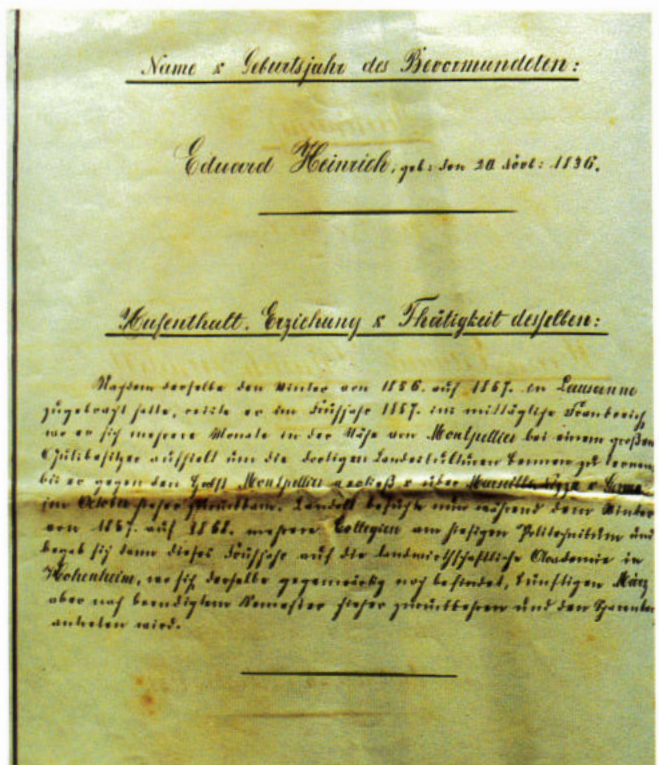 Name & Geburtsjahr des Bevormundeten:
Eduard Heinrich, geb: den 20 1836.
Aufenthalt, Erziehung & Thätigkeit desselben:
Nachdem derselbe den Winter von 1866. auf 1867. in Lausanne
zugebracht hatte, reiste er im Frühjahr 1867. ins mittägliche Frankreich,
wo er sich mehrere Monate in der Nähe von Montpellier bei einem großen
Gutsbesitzer aufhielt um die dortigen Landeskulturen kennen zu lernen,
bis er gegen den Herbst Montpellier verließ & über Marseille, Nizza & Genua
im October hieher zurückkam. Landolt besuchte nun während dem Winter
von 1867. auf 1868. mehrere Collegien am hiesigen Politechnikum und
begab sich dann dieses Frühjahr auf die landwirthschaftliche Academie in
Hohenheim, wo sich derselbe gegenwärtig noch befindet, künftigen März
aber nach beendigtem Semester hieher zurückkehren und den
antreten wird.